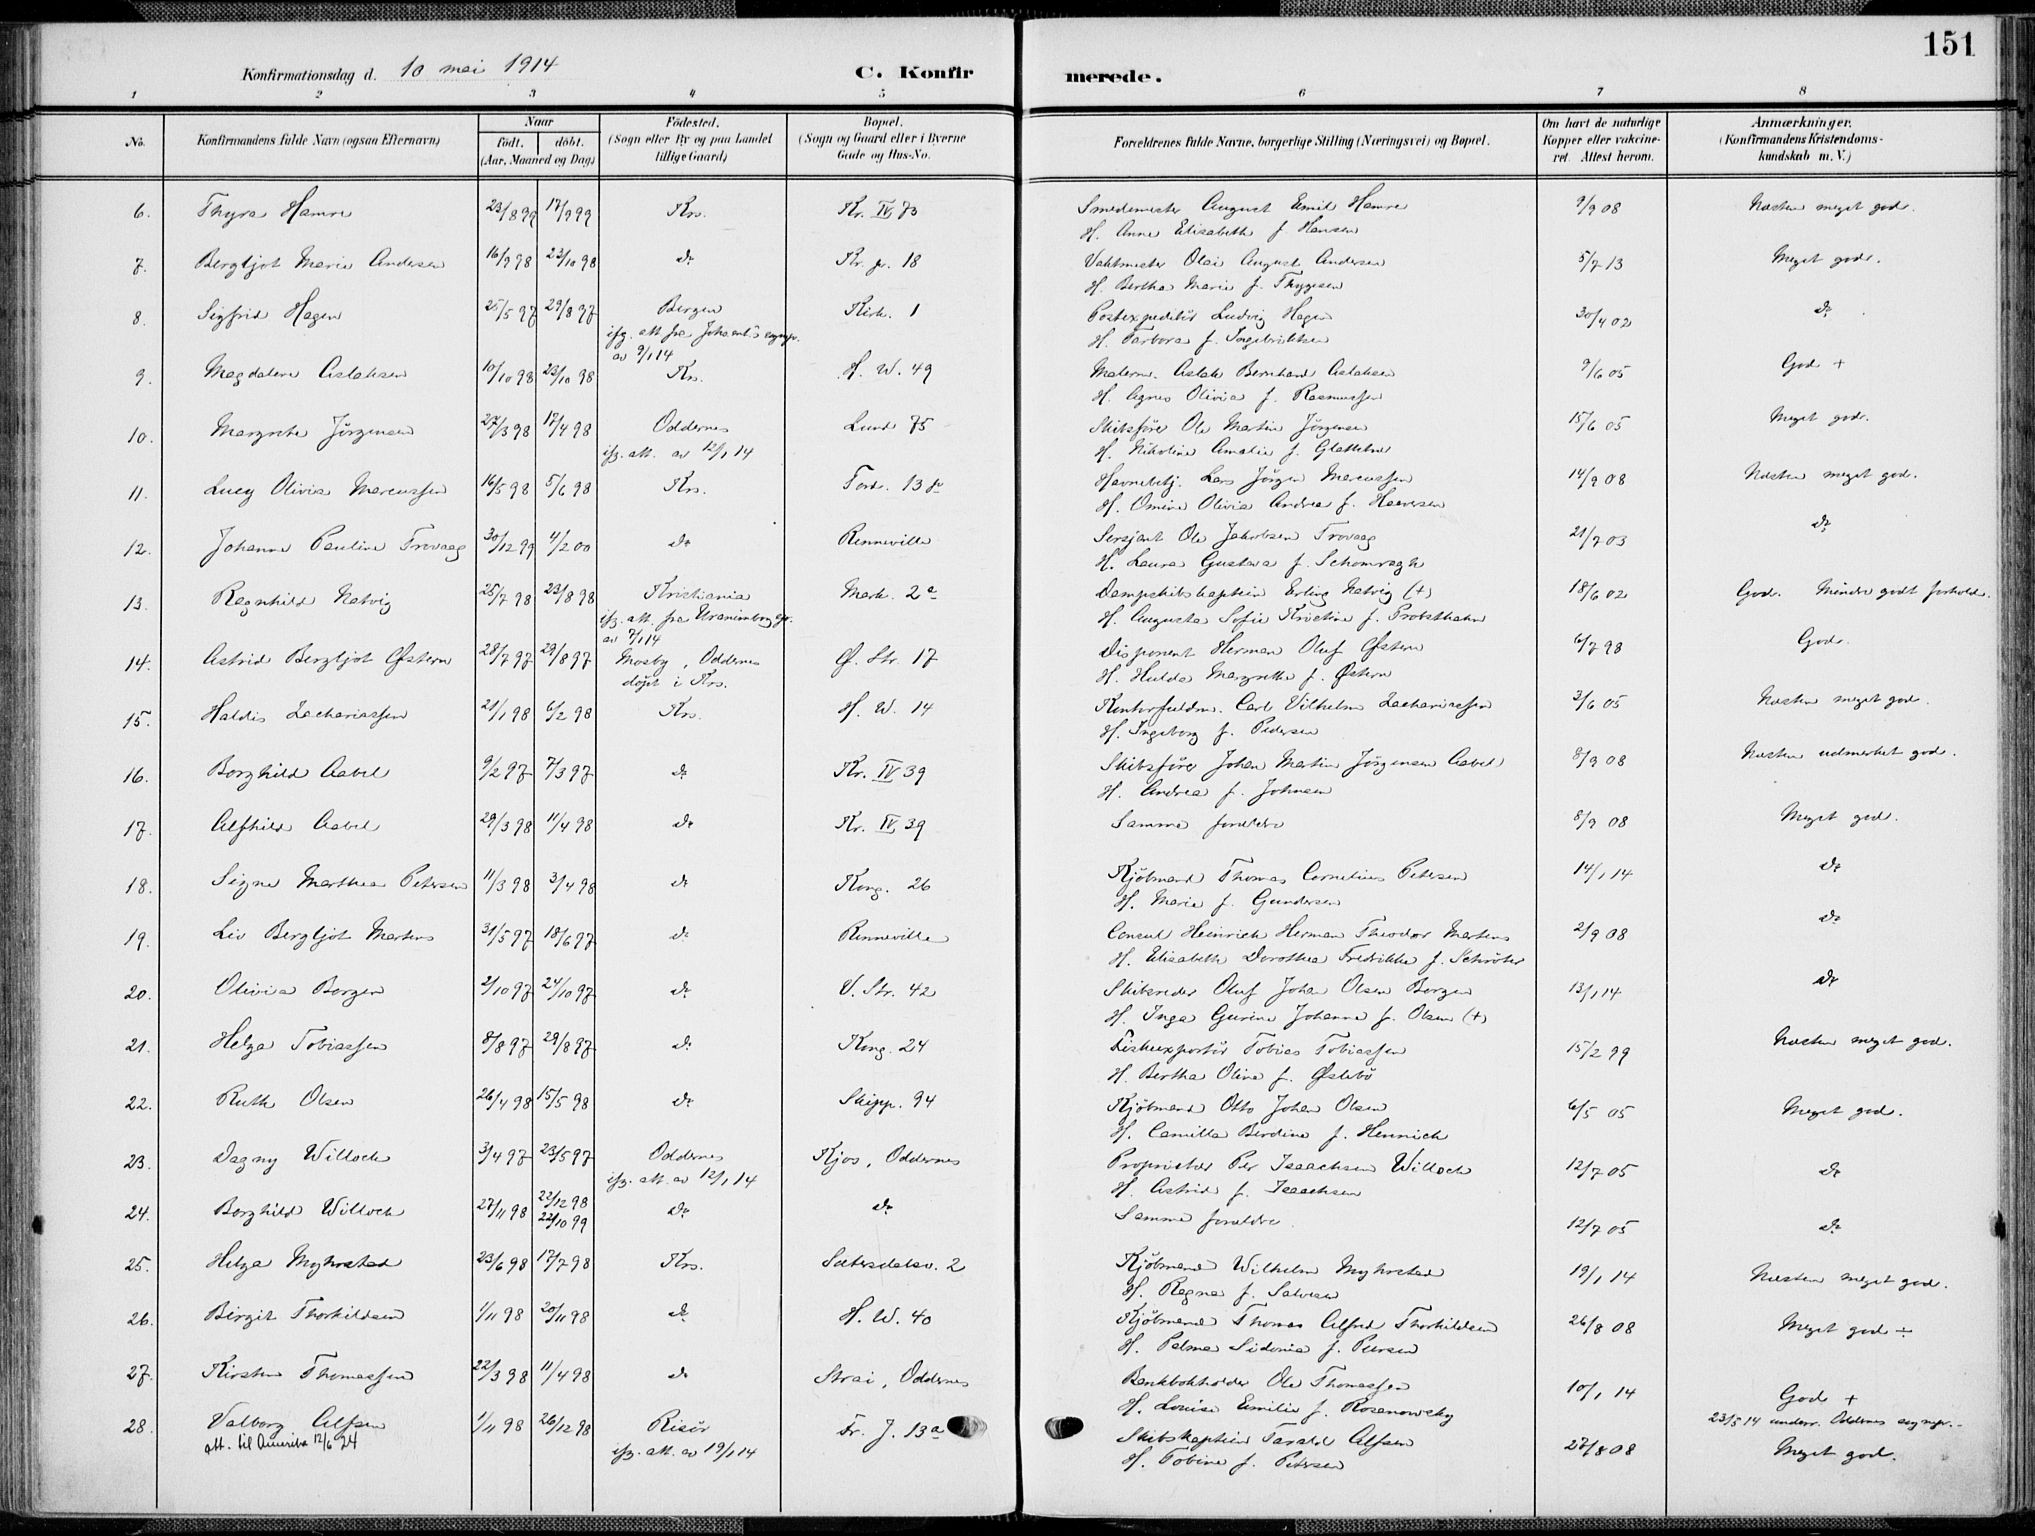 151
Konfirmationsdag d. 10 mai 1914 C. Konfirmerede.
1 2 3 4 5 6 7 8
No. Konfirmandens fulde Navn (ogsaa Efternavn) Naar født. døbt. (Aar, Maaned og Dag) Fødested. (Sogn eller By og paa Landet tillige Gaard) Bopæl. (Sogn og Gaard eller i Byerne Gade og Hus-No. Forældrenes fulde Navne, borgerlige Stilling (Næringsvei) og Bopæl. Om havt de naturlige Kopper eller vakcineret. Attest herom. Anmærkninger. (Konfirmandens Kristendomskundskab m. V.)
6. Thyra Hamre 23/8 99 17/9 99 Krs. Kr. IV 73 Smedemester August Emil Hamre 9/9 08 Næsten meget god.
H. Anne Elisabeth f. Hansen
7. Bergljot Marie Andersen 16/9 98 23/10 98 do Kr. pr. 18 Vaktmester Olai August Andersen 5/7 13 Meget god.
H. Bertha Marie f. Thygesen
8. Sigfrid Hagen 25/5 97 29/8 97 Bergen Kirk. 1 Postexpeditør Ludvig Hagen 30/4 02 do
ifg. att. fra Johannes sognepr. H. Barbora f. Ingebriktsen
av 9/1 14
9. Magdalene Aslaksen 10/10 98 23/10 98 Krs. H. W. 49 Malerm. Aslak Bernhard Aslaksen 9/6 05 God +
H. Agnes Olivia f. Rasmussen
10. Margrete Jørgensen 27/3 98 17/4 98 Oddernes Lund 75 Skibsfører Ole Martin Jørgensen 15/6 05 Meget god.
ifg. att. av 12/1 14 H. Nikoline Amalie f.
11. Lucy Olivia Marcussen 16/5 98 5/6 98 Krs. Tord. 13 Havnebetj. Lars Jørgen Marcussen 14/9 08 Næsten meget god.
H. Omine Olivia Andrea f. Haaversen
12. Johanne Pauline Trovaag 30/12 99 4/2 00 do Rinneville Sersjant Ole Jakobsen Trovaag 21/7 03 do
H. Laura Gustava f.
13. Ragnhild Natvig 25/7 98 23/8 98 Kristiania Mark. 2a Dampskibskaptein Erling Natvig (+) 18/6 02 God. Mindre godt forhold.
ifg. att. fra Uranienborg spr. H. Augusta Sofie Kristine f. Probsthahn
av 7/1 14
14. Astrid Bergljot Østern 28/7 97 29/8 97 Mosby, Oddernes Ø. Str. 17 Disponent Herman Oluf Østern 6/7 98 God.
døpt i Krs. H. Hulda Margrethe f. Østern
15. Haldis Zachariassen 21/1 98 6/2 98 Krs. H. W. 14 Kontorfuldm. Carl Vilhelm Zachariassen 3/6 05 Næsten meget god.
H. Ingeborg f. Pedersen
16. Borghild Aabel 9/2 97 7/3 97 do Kr. IV 39 Skibsfører Johan Martin Jørgensen Aabel 8/9 08 Næsten udmerket god.
H. Andrea f. Johnsen
17. Alfhild Aabel 29/3 98 11/4 98 do Kr. IV 39 Samme forældre 8/9 08 Meget god.
18. Signe Marthea Petersen 11/3 98 3/4 98 do Kong. 26 Kjøbmand Thomas Cornelius Petersen 14/1 14 do
H. Marie f. Gundersen
19. Liv Bergljot Martens 31/5 97 18/6 97 do Rinneville Consul Heinrich Herman Theodor Martens 2/9 08 do
H. Elisabeth Dorothea Fredrikke f. Schrøter
20. Olivia Borgen 2/10 97 24/10 97 do V. Str. 42 Skibsreder Oluf Johan Olsen Borgen 13/1 14 do
H. Inga Gurine Johanne f. Olsen (+)
21. Helga Tobiassen 8/8 97 29/8 97 do Kong. 24 Fiskeexportør Tobias Tobiassen 15/2 99 Næsten meget god.
H. Bertha Oline f. Østebø
22. Ruth Olsen 26/4 98 15/5 98 do Skipp. 94 Kjøbmand Otto Johan Olsen 6/5 05 Meget god.
H. Camilla Berdine f. Hennich
23. Dagny Willoch 3/4 97 23/5 97 Oddernes Kjos, Oddernes Proprietær Per Isaachsen Willoch 12/7 05 do
ifg. att. av 12/1 14 H. Astrid f. Isaachsen
24. Borghild Willoch 27/11 98 22/12 98 22/10 99 do do Samme forældre. 12/7 05 do
25. Helga Myhrstad 23/6 98 17/7 98 Krs. Sætersdalsv. 2 Kjøbmand Wilhelm Myhrstad 19/1 14 Næsten meget god.
H. Ragna f. Salvesen
26. Birgit Thorkildsen 1/11 98 20/11 98 do H. W. 40 Kjøbmand Thomas Alfred Thorkildsen 26/8 08 Meget god ÷
H. Palma Sidonia f. Persen
27. Kirsten Thomassen 22/3 98 11/4 98 do Strai, Oddernes Bankbokholder Ole Thomassen 10/1 14 God +
H. Louise Emilie f. Rosanowsky 23/5 14 underr. Oddernes sognepr.
28. Valborg Alfsen 1/11 98 26/12 98 Risør Fr. J. 13a Skibskaptein Tarald Alfsen 27/8 08 Meget god.
att. til Amerika 12/6 24 ifg. att. av 19/1 14 H. Tobine f. Petersen